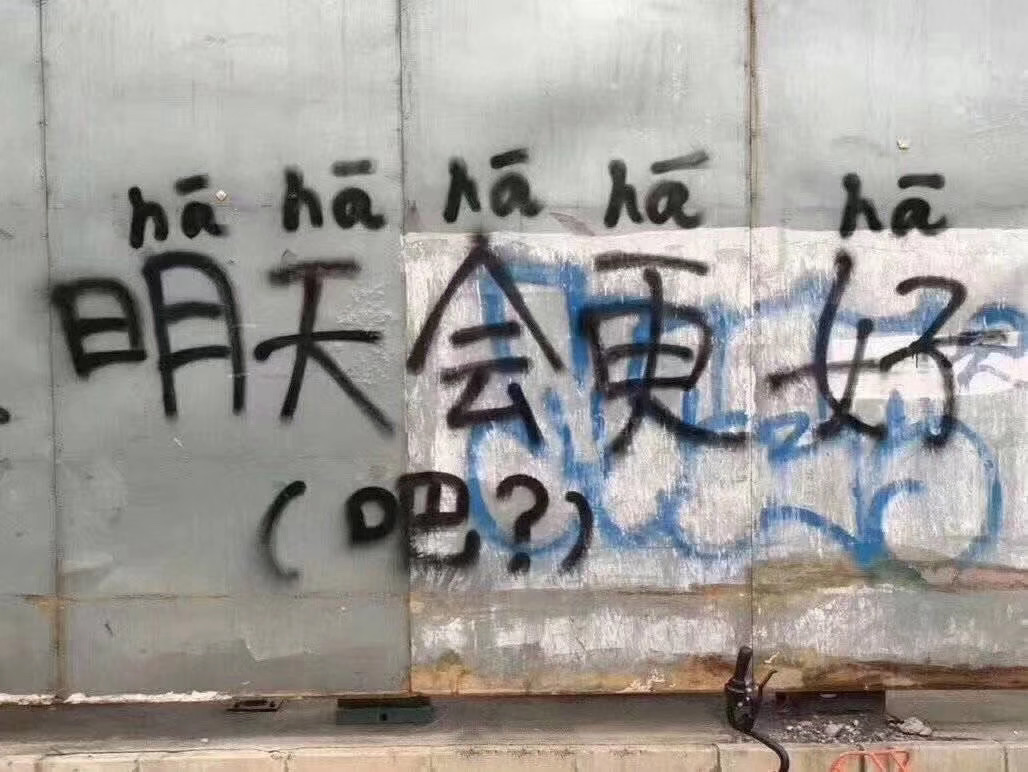 hā hā hā hā hā
明天会更好
(吧?)